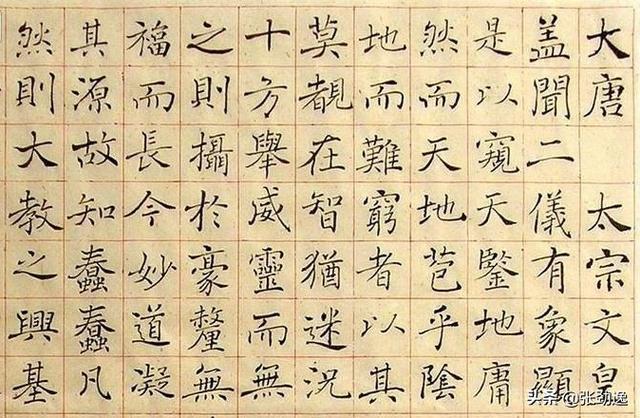 大唐 太宗文皇
盖聞二儀有象顯
是以窺天鑒地庸
然而天地苞乎陰
地而難窮者以其
莫覩在智猶迷況
十方舉威靈而無
之則攝於豪釐無
福而長今妙道凝
其源故知蠢蠢凡
然則大教之興基
头条 @张劲逸